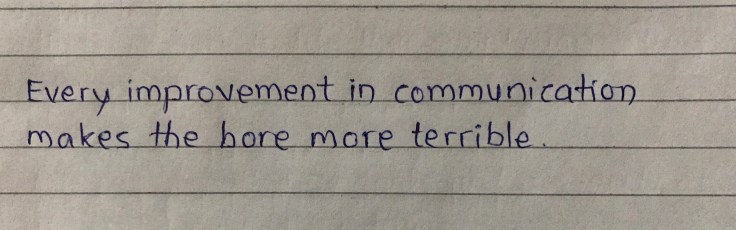 Every improvement in communication
makes the bore more terrible.